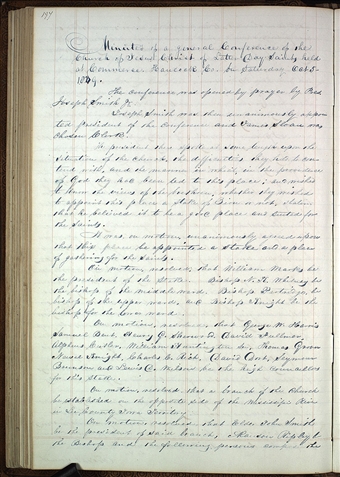 Minutes of a general Conference of the
Church of Jesus Christ of Latter Day Saints held
at Commerce Hancock Co. on Saturday Oct 5
1839.
The conference was opened by prayer by Pres
Joseph Smith Jr
Joseph Smith was then unanimously appoin
ted president of the Conference and James Sloan was
chosen Clerk
The president then spoke at some length upon the
situation of the Church, the difficulties they had to con
tend with, and the manner in which, in the providence
of God they had been led to this place; and wished
to know the views of the brethren, whether they wished
to appoint this place a stake of Zion or not, stating
that he believed it to be a good place and suited for
the Saints.
It was on motion, unanimously agreed upon
that this place be appointed a stake and a place
of gathering for the Saints.
On motion resolved, that William Marks be
the president of the Stake. Bishop N. K. Whitney be
the bishop of the middle ward. Bishop Partridge be
bishop of the upper ward, and Bishop Knight be the
bishop for the lower ward.
On motion, resolved, that George W. Harris
Samuel Bent, Henry G. Sherwood, David Fullmer
Alpheus Cutler, William Huntington Sr. Thomas Grover
Newel Knight, Charles C. Rich, David Dort, Seymour
Brunson and Lewis D. Wilson be the high Councillors
for this Stake.
On motion, resolved, that a branch of the Church
be established on the opposite side of the Mississippi River
in Territory
On motion resolved that Elder John Smith
be the president of said branch; Alanson Ripley
the Bishop and the following persons compose the